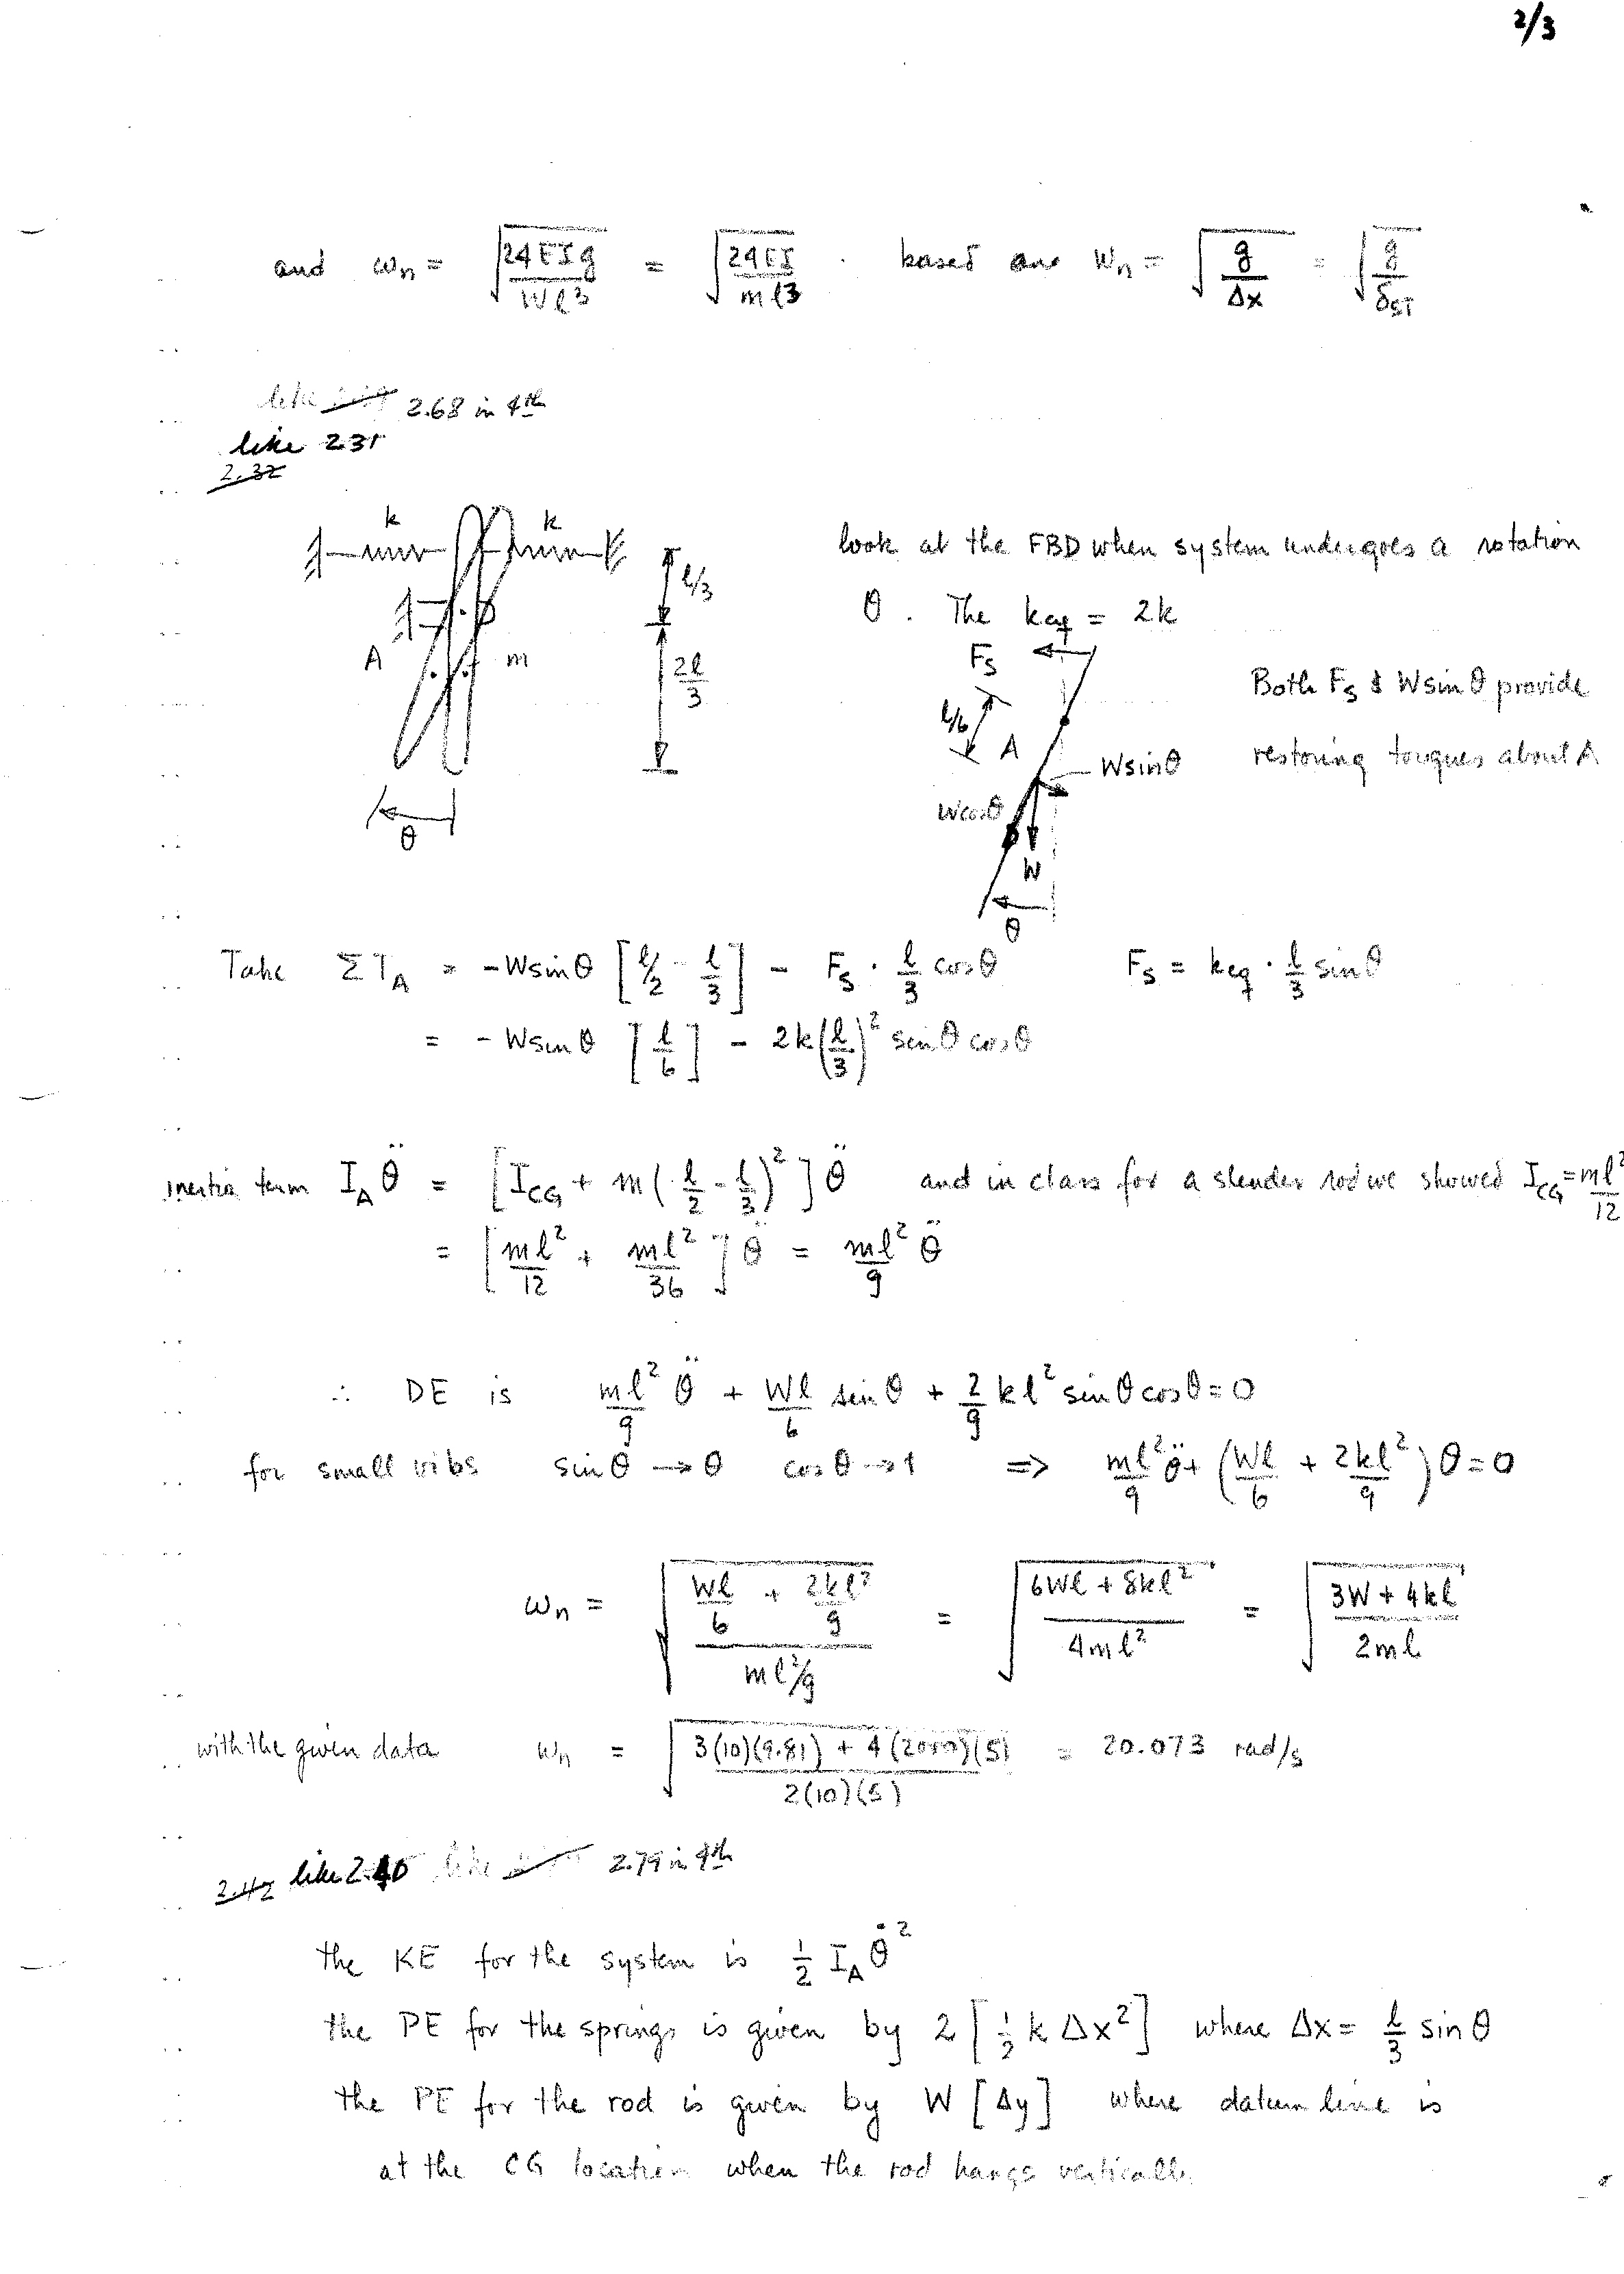 2/3
and ωn = √(24EIg / Wl³) = √(24EI / ml³) . based on ωn = √(g / Δx) = √(g / δST)
like 2.68 in 4th
like 2.31
2.32
k k
l/3
A m
2l/3
θ
look at the FBD when system undergoes a rotation
θ . The keq = 2k
Fs
l/6 A
Wsinθ
Wcosθ
W
θ
Both Fs & Wsinθ provide
restoring torques about A
Take ΣTA = -Wsinθ [l/2 - l/3] - Fs · l/3 cosθ Fs = keq · l/3 sinθ
= -Wsinθ [l/6] - 2k(l/3)² sinθcosθ
inertia term IAθ̈ = [ICG + m(l/2 - l/3)²]θ̈ and in class for a slender rod we showed ICG = ml²/12
= [ml²/12 + ml²/36]θ̈ = ml²/9 θ̈
∴ DE is ml²/9 θ̈ + Wl/6 sinθ + 2/9 kl² sinθcosθ = 0
for small vibs sinθ → θ cosθ → 1 ⇒ ml²/9 θ̈ + (Wl/6 + 2kl²/9)θ = 0
ωn = √((Wl/6 + 2kl²/9) / (ml²/9)) = √((6Wl + 8kl²) / 4ml²) = √((3W + 4kl) / 2ml)
with the given data ωn = √((3(10)(9.81) + 4(2000)(5)) / 2(10)(5)) = 20.073 rad/s
2.42 like 2.40 like 2.79 in 4th
the KE for the system is ½ IAθ̇²
the PE for the springs is given by 2[½kΔx²] where Δx = l/3 sinθ
the PE for the rod is given by W[Δy] where datum line is
at the CG location when the rod hangs vertically.